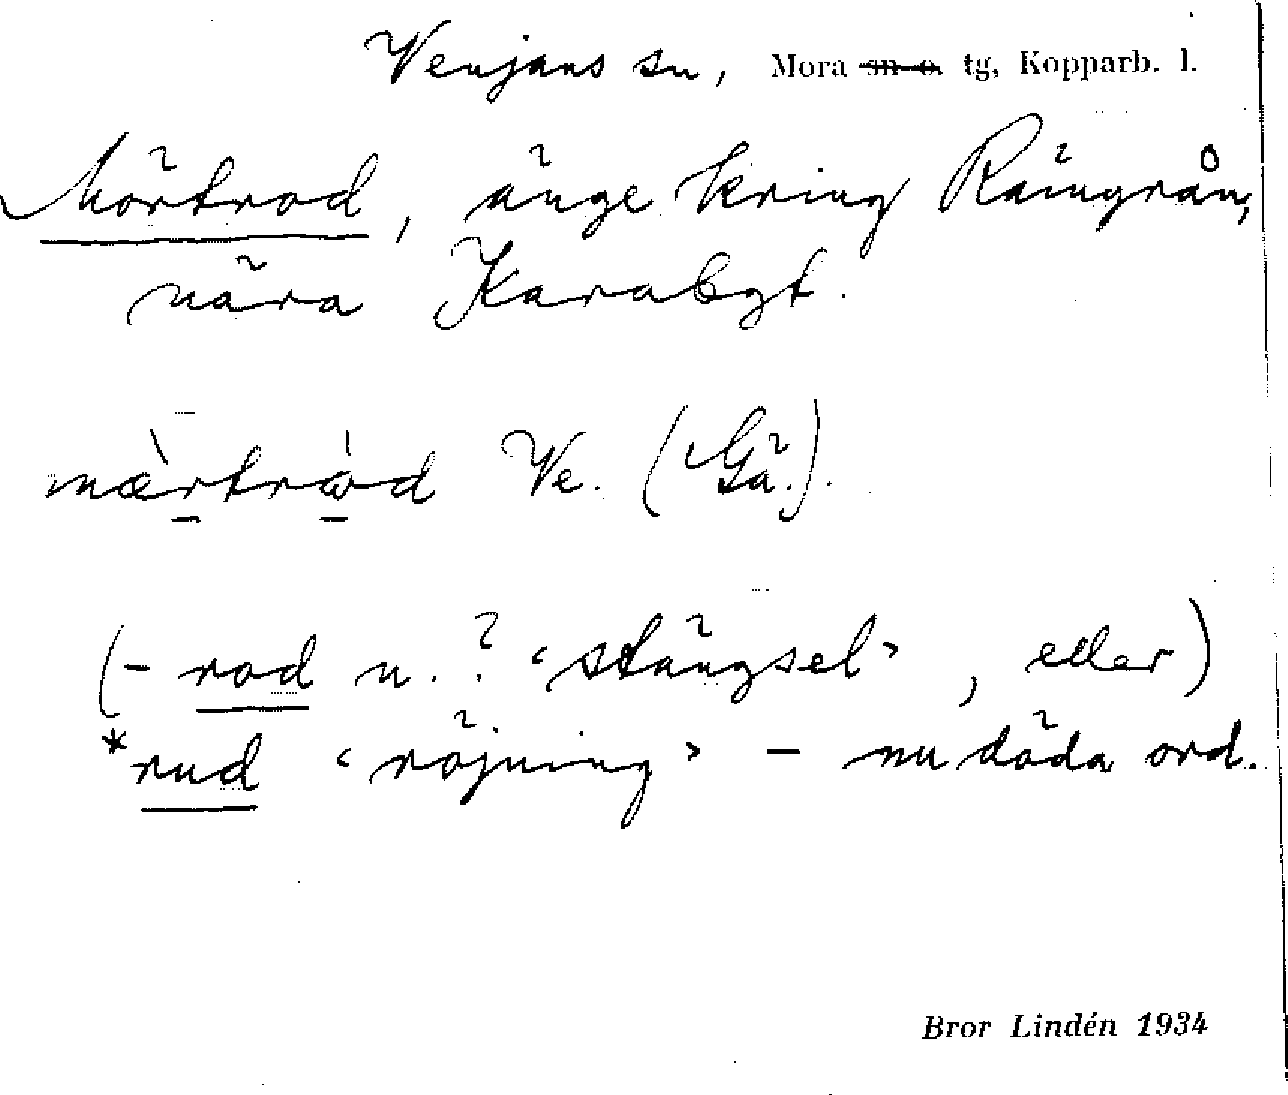 Venjans sn, Mora sn o. tg, Kopparb. l.
Mörtrod, änge kring Rängrån,
nära Karabgt.
mæ̀rtràd Ve. (Gä.).
(-rod n. ? ‹stängsel›, eller)
*rud ‹röjning› – nu döda ord.
Bror Lindén 1934